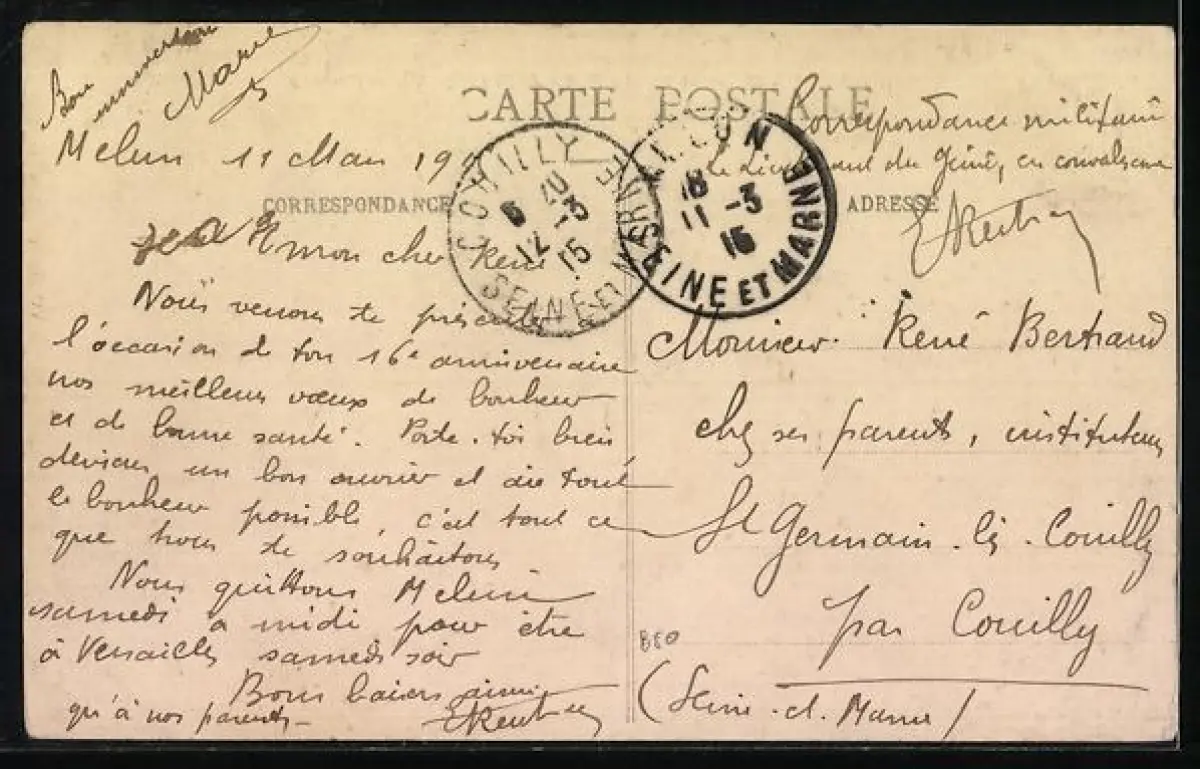 Bon
anniversaire
Marie
Melun 11 Mars 19
CARTE POSTALE
CORRESPONDANCE
ADRESSE
COUILLY
12 -3
15
SEINE-ET-MARNE
MELUN
18
11 -3
15
SEINE ET MARNE
Correspondance militaire
Le Lieutenant du Génie, en convalescence
mon cher René
Nous venons te présenter
l'occasion de ton 16e anniversaire
nos meilleurs vœux de bonheur
et de bonne santé. Porte-toi bien,
deviens un bon ouvrier et aie tout
le bonheur possible, c'est tout ce
que nous te souhaitons
Nous quittons Melun
samedi à midi pour être
à Versailles samedi soir
Bons baisers ainsi
qu'à nos parents
Monsieur René Bertrand
chez ses parents, instituteurs
St Germain-lès-Couilly
par Couilly
(Seine-et-Marne)